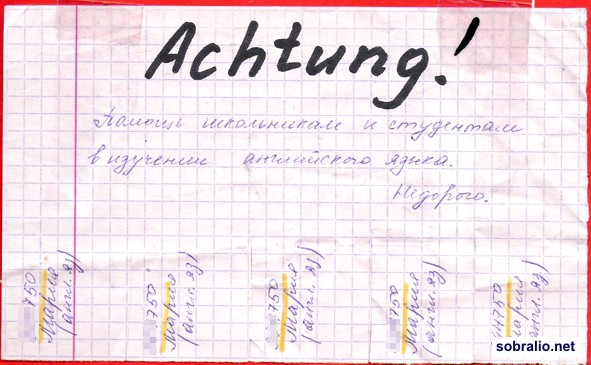 Achtung!
Помощь школьникам и студентам
в изучении английского языка.
Недорого.
750
Мария
(англ. яз)
750
Мария
(англ. яз)
750
Мария
(англ. яз)
750
Мария
(англ. яз)
44750
Мария
англ. яз)
sobralio.net